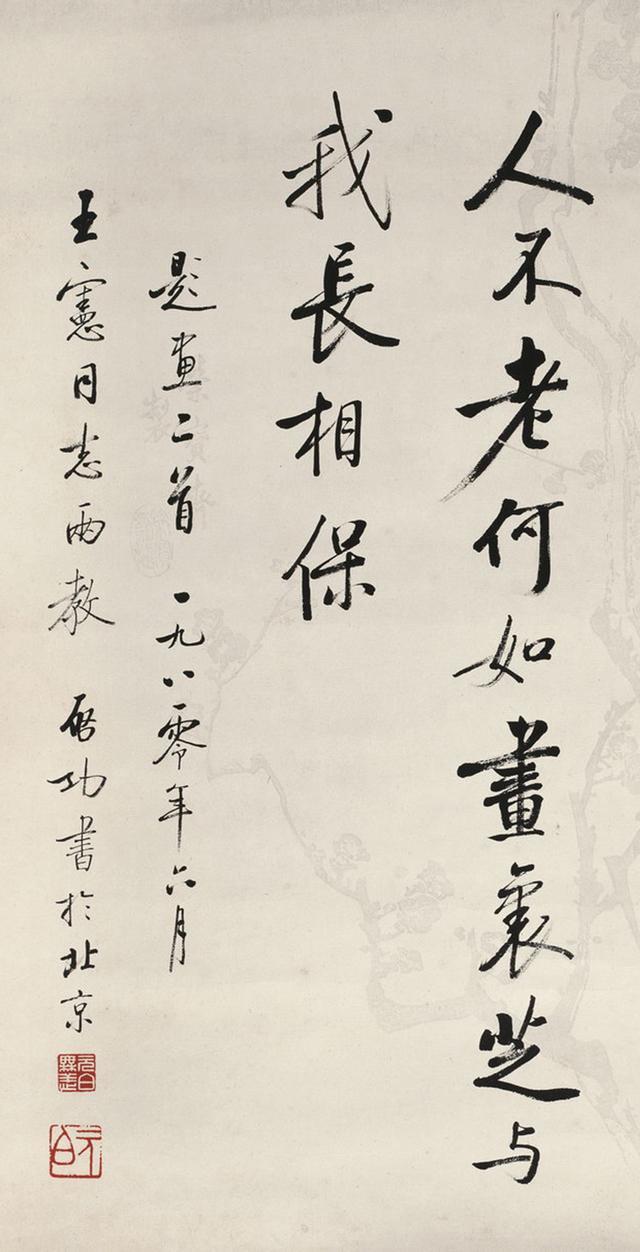 人不老何如畫裏芝与
我長相保
題畫二首 一九八零年六月
王憲同志兩教 啓功書於北京
元白無恙
元白